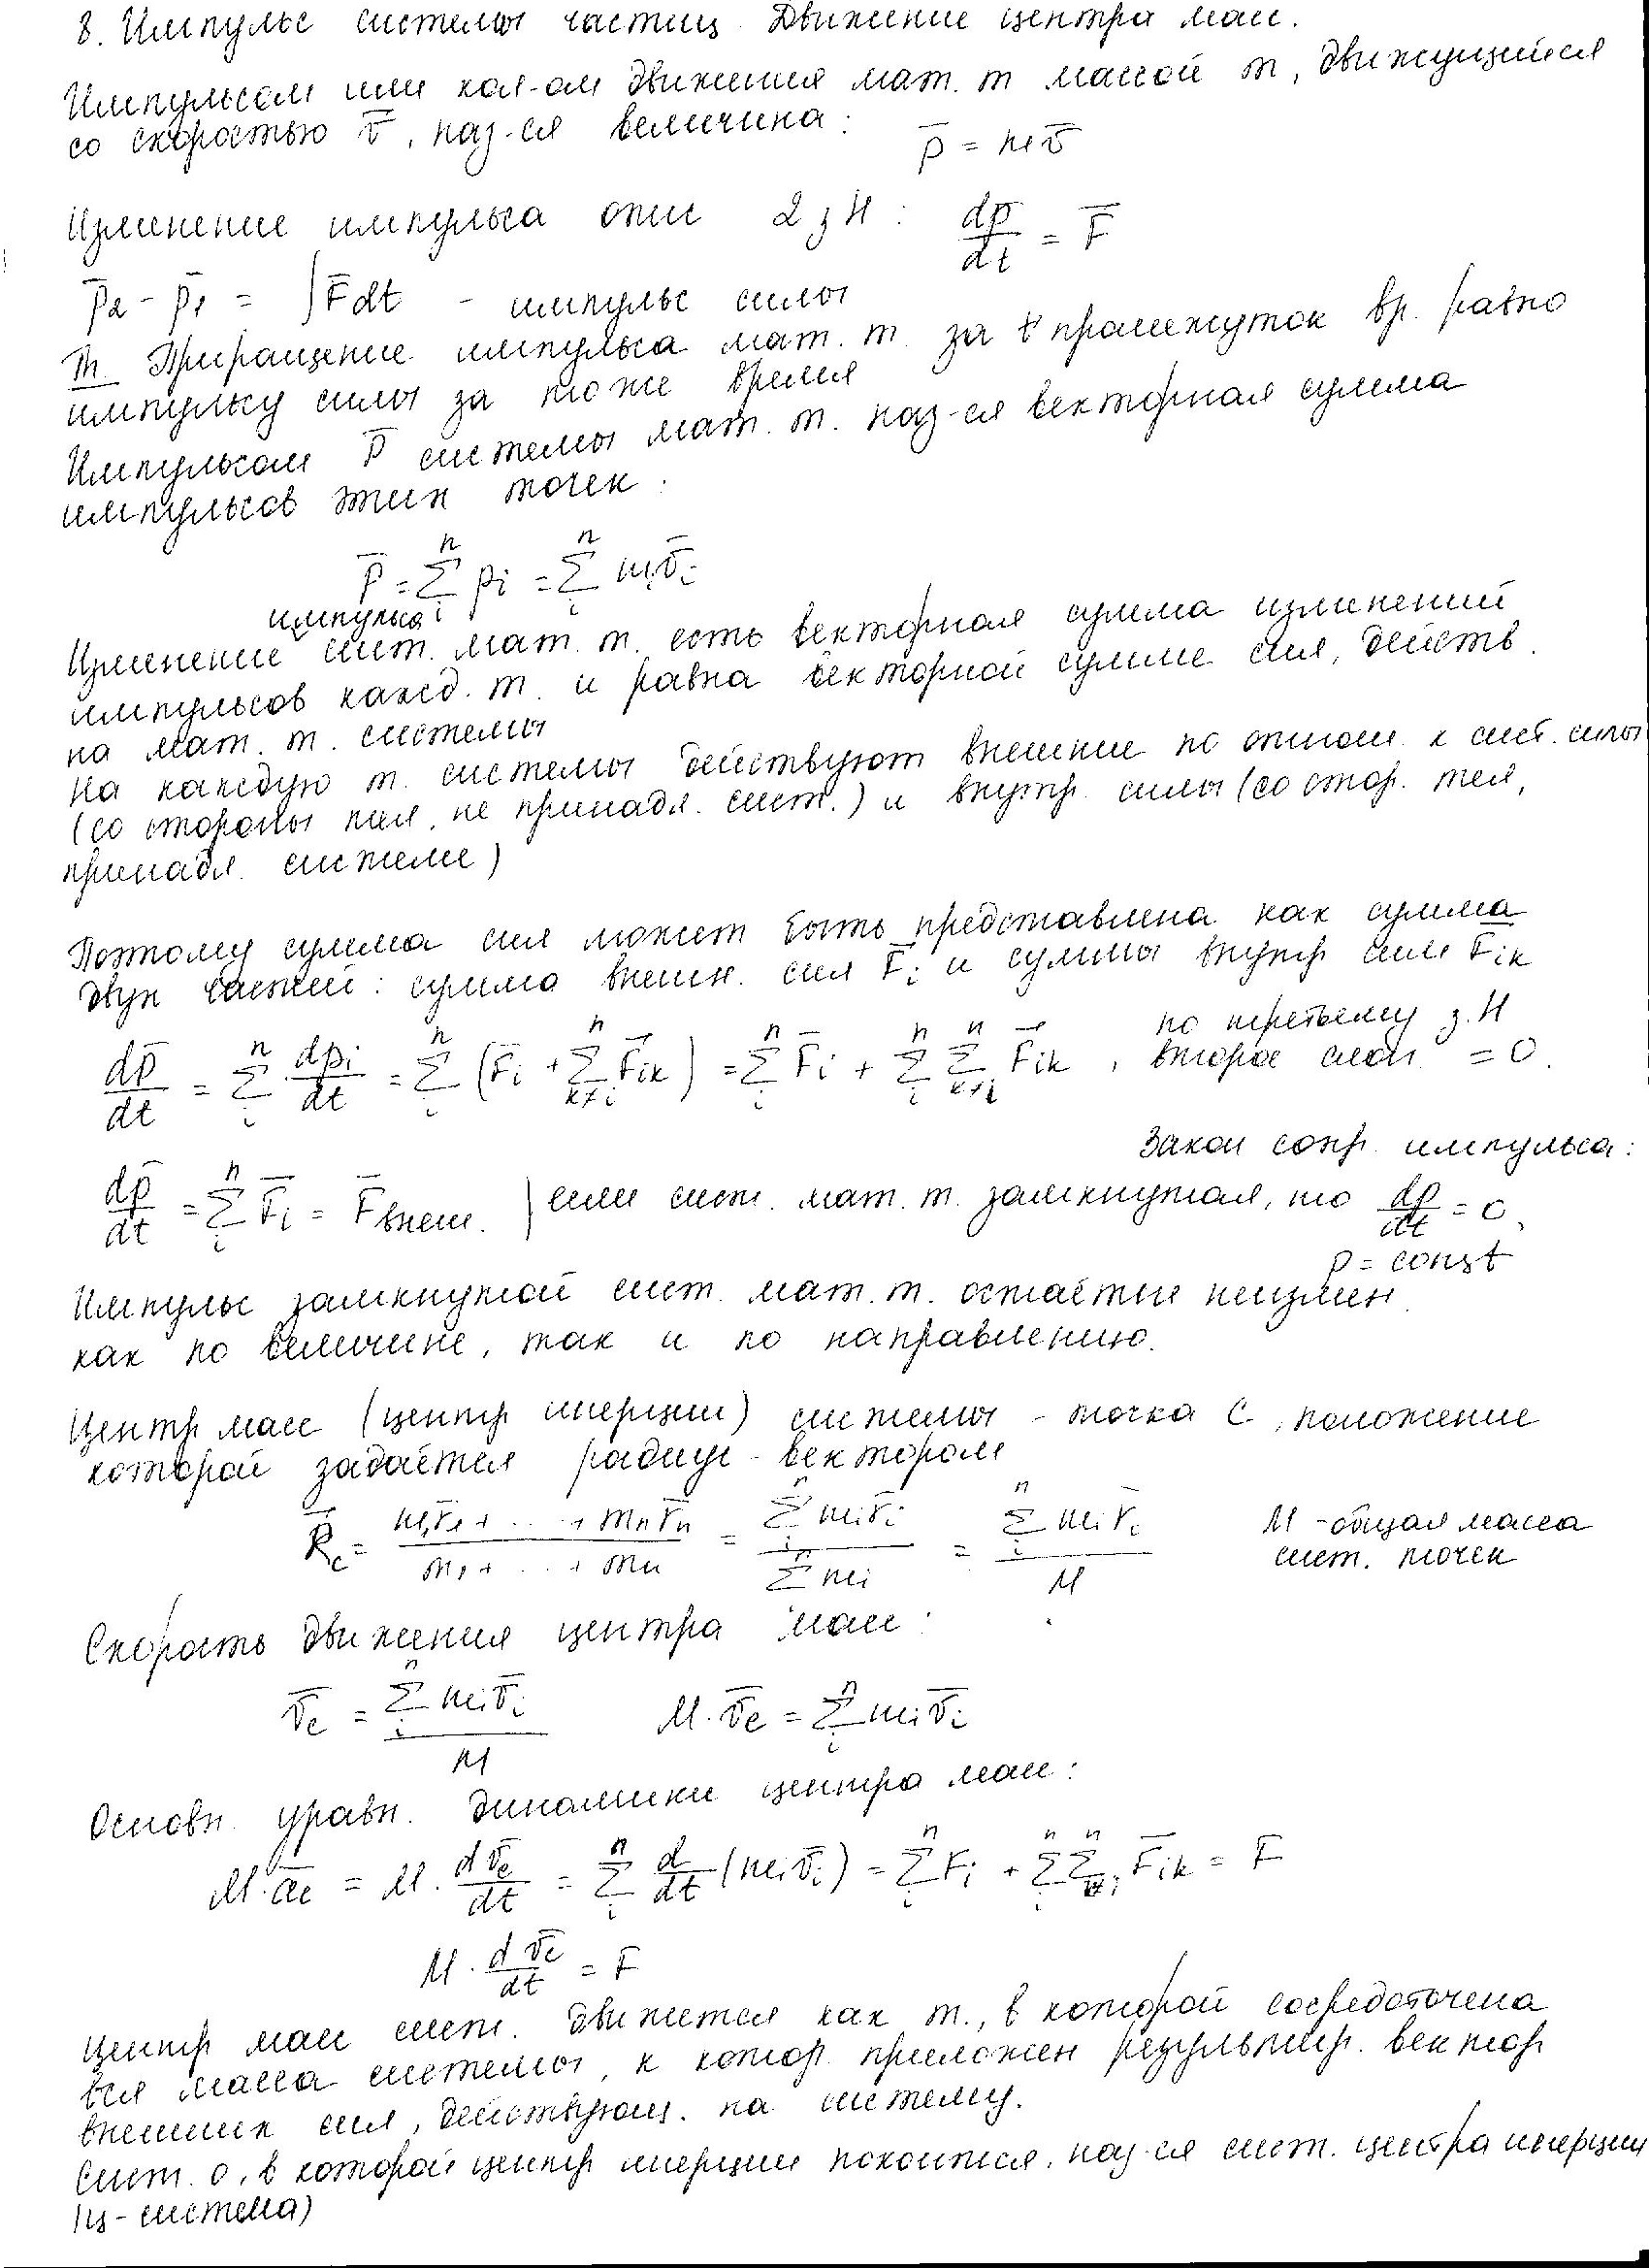 8. Импульс системы частиц. Движение центра масс.
Импульсом или кол-ом движения мат. т массой m, движущийся
со скоростью v̅, наз-ся величина: p̅ = mv̅
Изменение импульса опис 2 з Н: dp̅/dt = F̅
p̅₂ - p̅₁ = ∫F̅dt - импульс силы
Т. Приращение импульса мат. т. за t промежуток вр. равно
импульсу силы за то же время
Импульсом P̅ системы мат. т. наз-ся векторная сумма
импульсов этих точек:
P̅ = Σᵢⁿ pᵢ = Σᵢⁿ mᵢv̅ᵢ
импульса
Изменение сист. мат. т. есть векторная сумма изменений
импульсов кажд. т. и равна векторной сумме сил, действ.
на мат. т. системы
На каждую т. системы действуют внешние по отнош. к сист. силы
(со стороны тел, не принадл. сист.) и внутр. силы (со стор. тел,
принадл. системе)
Поэтому сумма сил может быть представлена как сумма
двух частей: сумма внешн. сил F̅ᵢ и суммы внутр сил F̅ᵢₖ
dp̅/dt = Σᵢⁿ dp̅ᵢ/dt = Σᵢⁿ (F̅ᵢ + Σₖ≠ᵢⁿ F̅ᵢₖ) = Σᵢⁿ F̅ᵢ + Σᵢⁿ Σₖ≠ᵢⁿ F̅ᵢₖ, по третьему з. Н
второе слаг. = 0.
Закон сохр. импульса:
dp̅/dt = Σᵢⁿ F̅ᵢ = F̅внеш. | если сист. мат. т. замкнутая, то dp/dt = 0,
p = const
Импульс замкнутой сист. мат. т. остаётся неизмен.
как по величине, так и по направлению.
Центр масс (центр инерции) системы - точка C, положение
которой задаётся радиус-вектором
R̅c = (m₁r̅₁ + ... + mₙr̅ₙ)/(m₁ + ... + mₙ) = Σᵢⁿ mᵢr̅ᵢ / Σᵢⁿ mᵢ = Σᵢⁿ mᵢr̅ᵢ / M M - общая масса
сист. точек
Скорость движения центра масс:
v̅c = Σᵢⁿ mᵢv̅ᵢ / M M·v̅c = Σᵢⁿ mᵢv̅ᵢ
Основн. уравн. динамики центра масс:
M·a̅c = M·dv̅c/dt = Σᵢⁿ d/dt (mᵢv̅ᵢ) = Σᵢⁿ Fᵢ + Σᵢⁿ Σₖ≠ᵢⁿ F̅ᵢₖ = F̅
M·dv̅c/dt = F̅
Центр масс сист. движется как т., в которой сосредоточена
вся масса системы, к котор. приложен результир. вектор
внешних сил, действующ. на систему.
Сист. о, в которой центр инерции покоится, наз-ся сист. центра инерции
(ц-система)